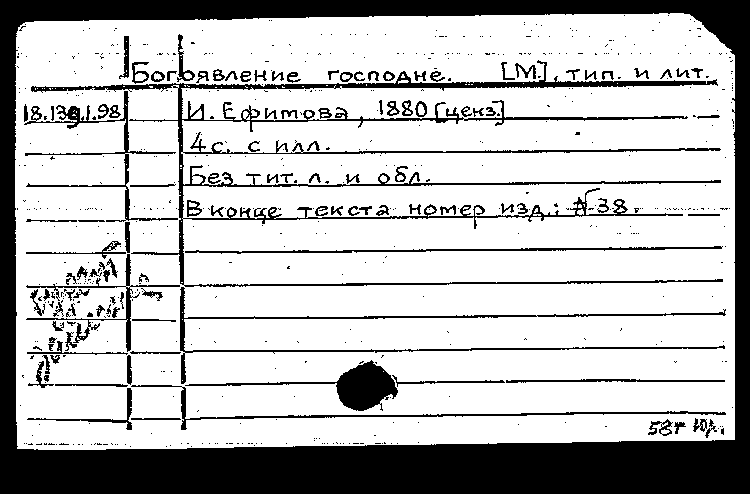 Богоявление господне. [М.], тип. и лит.
18.139.1.98 И. Ефимова, 1880 [ценз.]
4 с. с илл.
Без тит. л. и обл.
В конце текста номер изд.: №38.
58г